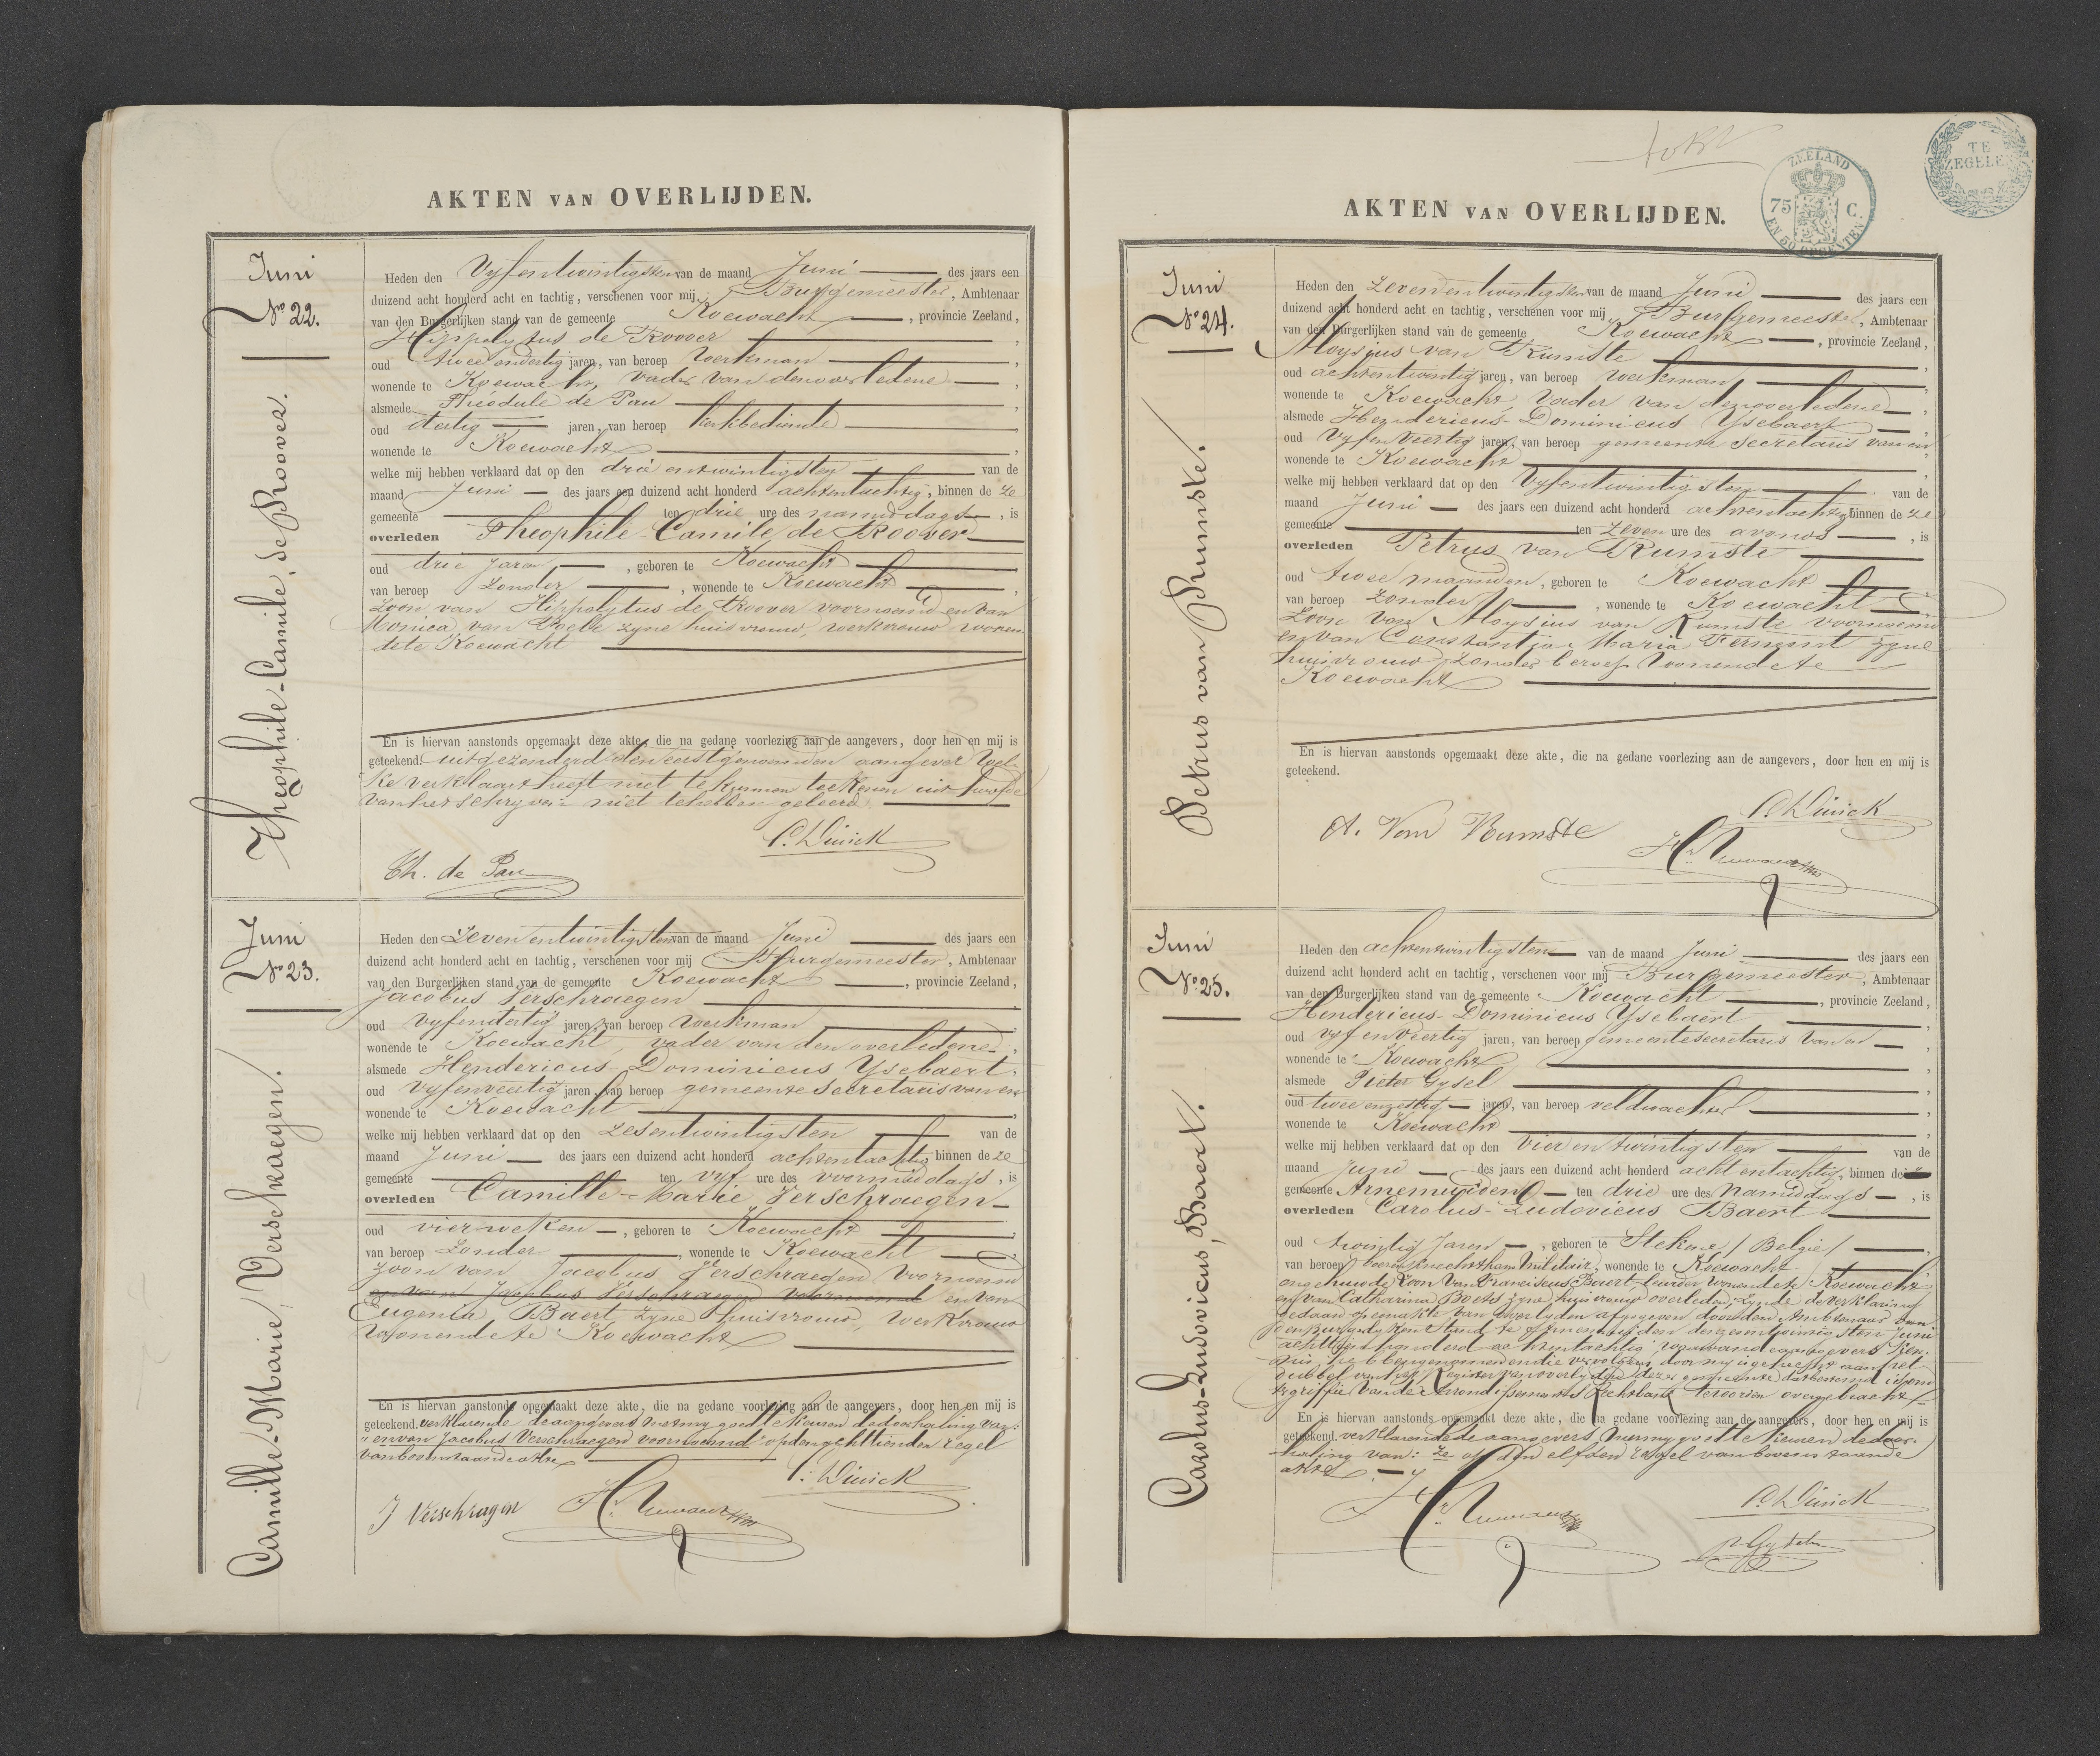 AKTEN VAN OVERLIJDEN.
Juni
No 22.
Theophile-Camile, de Roover.
Heden den Vyfentwintigsten van de maand Juni des jaars een
duizend acht honderd acht en tachtig, verschenen voor mij, Burgemeester, Ambtenaar
van den Burgerlijken stand van de gemeente Koewacht, provincie Zeeland,
Hippolytus de Roover
oud twee endertig jaren, van beroep Werkman
wonende te Koewacht, vader van den overledene,
alsmede Théodule de Pau
oud dertig jaren, van beroep kerkbediende
wonende te Koewacht
welke mij hebben verklaard dat op den drie entwintigsten van de
maand Juni des jaars een duizend acht honderd achtentachtig, binnen de ze
gemeente ten drie ure des namiddags, is
overleden Theophile-Camile de Roover
oud drie Jaren, geboren te Koewacht
van beroep Zonder, wonende te Koewacht,
Zoon van Hippolytus de Roover voornoemd en van
Monica van zyne huisvrouw, werkvrouw wonen
dete Koewacht
En is hiervan aanstonds opgemaakt deze akte, die na gedane voorlezing aan de aangevers, door hen en mij is
geteekend. uitgezonderd den eerstgenoemden aangever Wel-
ke verklaard heeft niet te kunnen teekenen uit hoofde
van het schryven niet te hebben geleerd.
Th. de Pau
Juni
No 23.
Camille-Marie, Verschraegen.
Heden den Zevenentwintigsten van de maand Juni des jaars een
duizend acht honderd acht en tachtig, verschenen voor mij Burgemeester, Ambtenaar
van den Burgerlijken stand van de gemeente Koewacht, provincie Zeeland,
Jacobus Verschraegen
oud vyfendertig jaren, van beroep Werkman
wonende te Koewacht, vader van den overledene,
alsmede Hendericus-Dominicus Ysebaert,
oud vyfenveertig jaren, van beroep gemeente Secretaris van en
wonende te Koewacht
welke mij hebben verklaard dat op den Zesentwintigsten van de
maand Juni des jaars een duizend acht honderd achtentachtig, binnen de ze
gemeente ten vyf ure des voormiddags, is
overleden Camille-Marie Verschraegen
oud vier weken, geboren te Koewacht
van beroep Zonder, wonende te Koewacht,
zoon van Jacobus Verschraegen Voornoemd
en van Jacobus Verschraegen voornoemd en van
Eugenia Baert, zyne huisvrouw, Werkvrouw
Wonende te Koewacht
En is hiervan aanstonds opgemaakt deze akte, die na gedane voorlezing aan de aangevers, door hen en mij is
geteekend. verklarende de aangevers met my goed te keuren de doorhaling van:
"en van Jacobus Verschraegen voornoemd" op den achttienden regel
van bovenstaande akte
J Verschragen
AKTEN VAN OVERLIJDEN.
ZEELAND
75 C.
EN 50 OPCENTEN
TE ZEGELEN
Juni
No 24.
Petrus van Rumste.
Heden den Zevenentwintigsten van de maand Juni des jaars een
duizend acht honderd acht en tachtig, verschenen voor mij Burgemeester, Ambtenaar
van den Burgerlijken stand van de gemeente Koewacht, provincie Zeeland,
Aloysius van Rumste
oud achtentwintig jaren, van beroep Werkman
wonende te Koewacht, Vader van den overledene,
alsmede Hendericus-Dominicus Ysebaert
oud Vyfenveertig jaren, van beroep gemeente Secretaris van en
wonende te Koewacht
welke mij hebben verklaard dat op den Vyfentwintigsten van de
maand Juni des jaars een duizend acht honderd achtentachtig, binnen de ze
gemeente ten Zeven ure des avonds, is
overleden Petrus van Rumste
oud twee maanden, geboren te Koewacht
van beroep Zonder, wonende te Koewacht,
Zoon van Aloysius van Rumste voornoemd
en van Constantja-Maria Ferment zyne
huisvrouw, Zonder beroep Wonende te
Koewacht
En is hiervan aanstonds opgemaakt deze akte, die na gedane voorlezing aan de aangevers, door hen en mij is
geteekend.
A. Van Rumste
Juni
No 25.
Carolus-Ludovicus, Baert.
Heden den achtentwintigsten van de maand Juni des jaars een
duizend acht honderd acht en tachtig, verschenen voor mij Burgemeester, Ambtenaar
van den Burgerlijken stand van de gemeente Koewacht, provincie Zeeland,
Hendericus-Dominicus Ysebaert
oud vyfenveertig jaren, van beroep gemeentesecretaris van en
wonende te Koewacht
alsmede Pieter Gysel
oud twee enzestig jaren, van beroep veldwachter
wonende te Koewacht
welke mij hebben verklaard dat op den Vier en twintigsten van de
maand Juni des jaars een duizend acht honderd acht entachtig, binnen de
gemeente Arnemuiden ten drie ure des Namiddags, is
overleden Carolus-Ludovicus Baert
oud twintig Jaren, geboren te Stekene /Belgie/
van beroep wonende te Koewacht
ongehuwde, Zoon van Franciscus Baert, wonende te Koewacht
en van Catharina zyne huisvrouw, overleden, zynde de verklaring
gedaan van overlyden afgegeven door den Ambtenaar van
den Burgerlyken Stand te Arnemuiden den zesentwintigsten Juni
achttien honderd achtentachtig, waarvan de aangevers ken-
nis hebben genomen en die vervolgens door my is gehecht aan het
dubbel van het Register van overlyden dezer gemeente dat bestemd is om
ter griffie van de Arrondissements Rechtbank te worden overgebracht
En is hiervan aanstonds opgemaakt deze akte, die na gedane voorlezing aan de aangevers, door hen en mij is
geteekend. verklarende de aangevers met my goed te keuren de door-
haling van: ze op den elfden regel van bovenstaande
akte